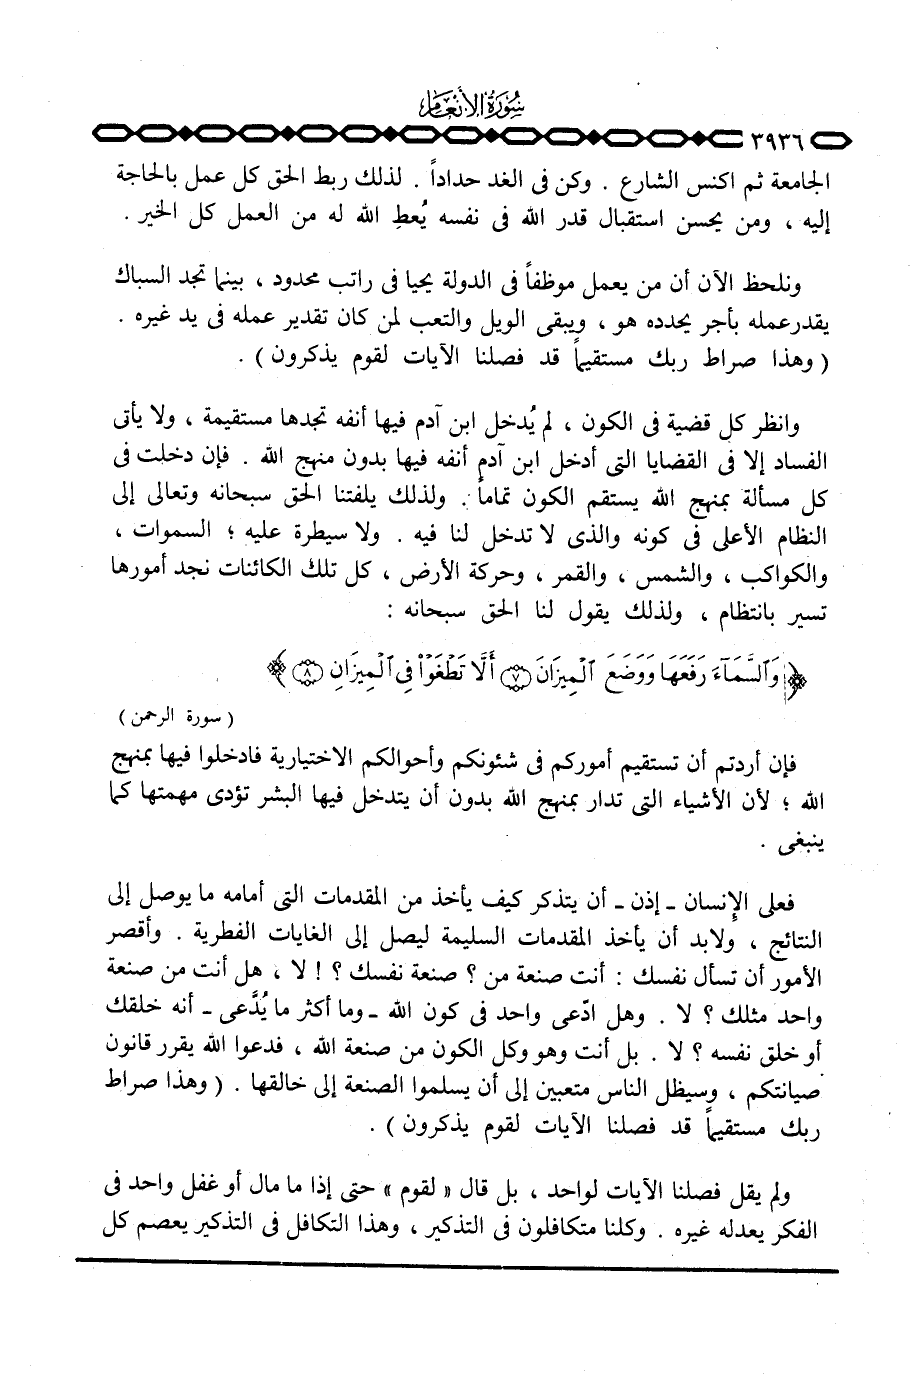 سورة الأنعام
٣٩٣٦
الجامعة ثم اكنس الشارع . وكن فى الغد حداداً . لذلك ربط الحق كل عمل بالحاجة
إليه ، ومن يحسن استقبال قدر الله فى نفسه يُعطِ الله له من العمل كل الخير .
ونلحظ الآن أن من يعمل موظفاً فى الدولة يحيا فى راتب محدود ، بينما تجد السباك
يقدرعمله بأجر يحدده هو ، ويبقى الويل والتعب لمن كان تقدير عمله فى يد غيره .
( وهذا صراط ربك مستقيماً قد فصلنا الآيات لقوم يذكرون ) .
وانظر كل قضية فى الكون ، لم يُدخل ابن آدم فيها أنفه تجدها مستقيمة ، ولا يأتى
الفساد إلا فى القضايا التى أدخل ابن آدم أنفه فيها بدون منهج الله . فإن دخلت فى
كل مسألة بمنهج الله يستقم الكون تماماً . ولذلك يلفتنا الحق سبحانه وتعالى إلى
النظام الأعلى فى كونه والذى لا تدخل لنا فيه . ولا سيطرة عليه ؛ السموات ،
والكواكب ، والشمس ، والقمر ، وحركة الأرض ، كل تلك الكائنات نجد أمورها
تسير بانتظام ، ولذلك يقول لنا الحق سبحانه :
﴿ وَٱلسَّمَآءَ رَفَعَهَا وَوَضَعَ ٱلْمِيزَانَ ٧ أَلَّا تَطْغَوْا۟ فِى ٱلْمِيزَانِ ٨ ﴾
( سورة الرحمن )
فإن أردتم أن تستقيم أموركم فى شئونكم وأحوالكم الاختيارية فادخلوا فيها بمنهج
الله ؛ لأن الأشياء التى تدار بمنهج الله بدون أن يتدخل فيها البشر تؤدى مهمتها كما
ينبغى .
فعلى الإنسان - إذن - أن يتذكر كيف يأخذ من المقدمات التى أمامه ما يوصل إلى
النتائج ، ولابد أن يأخذ المقدمات السليمة ليصل إلى الغايات الفطرية . وأقصر
الأمور أن تسأل نفسك : أنت صنعة من ؟ صنعة نفسك ؟ ! لا ، هل أنت من صنعة
واحد مثلك ؟ لا . وهل ادّعى واحد فى كون الله - وما أكثر ما يُدَّعى - أنه خلقك
أو خلق نفسه ؟ لا . بل أنت وهو وكل الكون من صنعة الله ، فدعوا الله يقرر قانون
صيانتكم ، وسيظل الناس متعبين إلى أن يسلموا الصنعة إلى خالقها . ( وهذا صراط
ربك مستقيماً قد فصلنا الآيات لقوم يذكرون ) .
ولم يقل فصلنا الآيات لواحد ، بل قال « لقوم » حتى إذا ما مال أو غفل واحد فى
الفكر يعدله غيره . وكلنا متكافلون فى التذكير ، وهذا التكافل فى التذكير يعصم كل